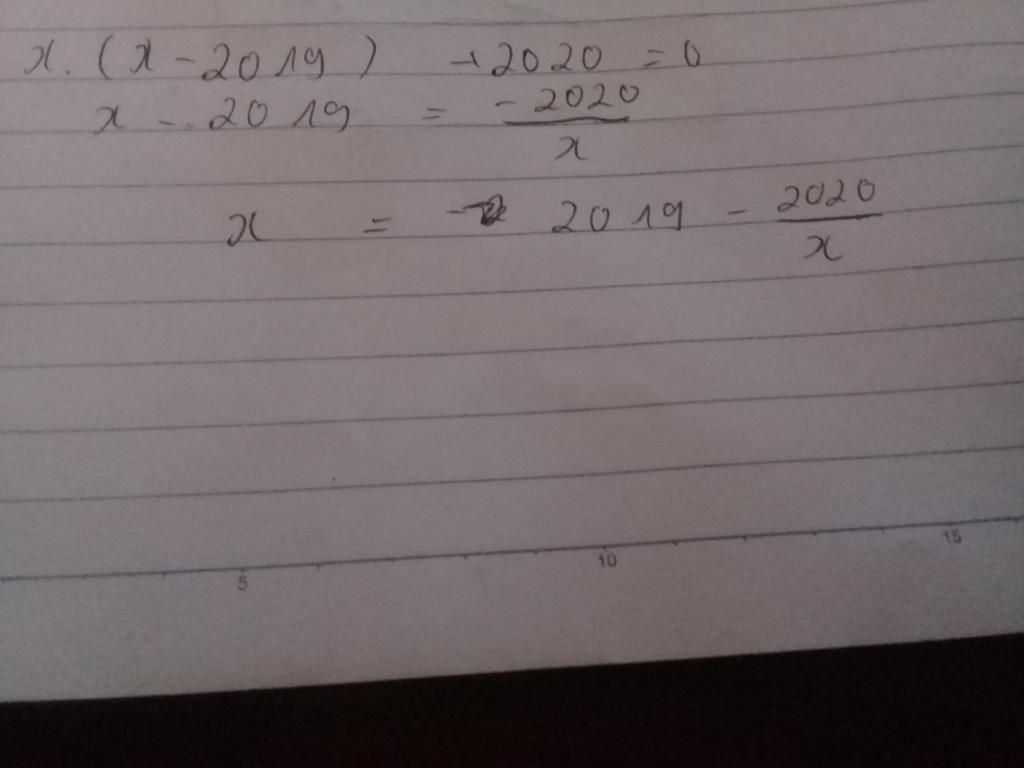 x . (x - 2019) + 2020 = 0
x - 2019 = - 2020 / x
x = 2019 - 2020 / x
5 10 15